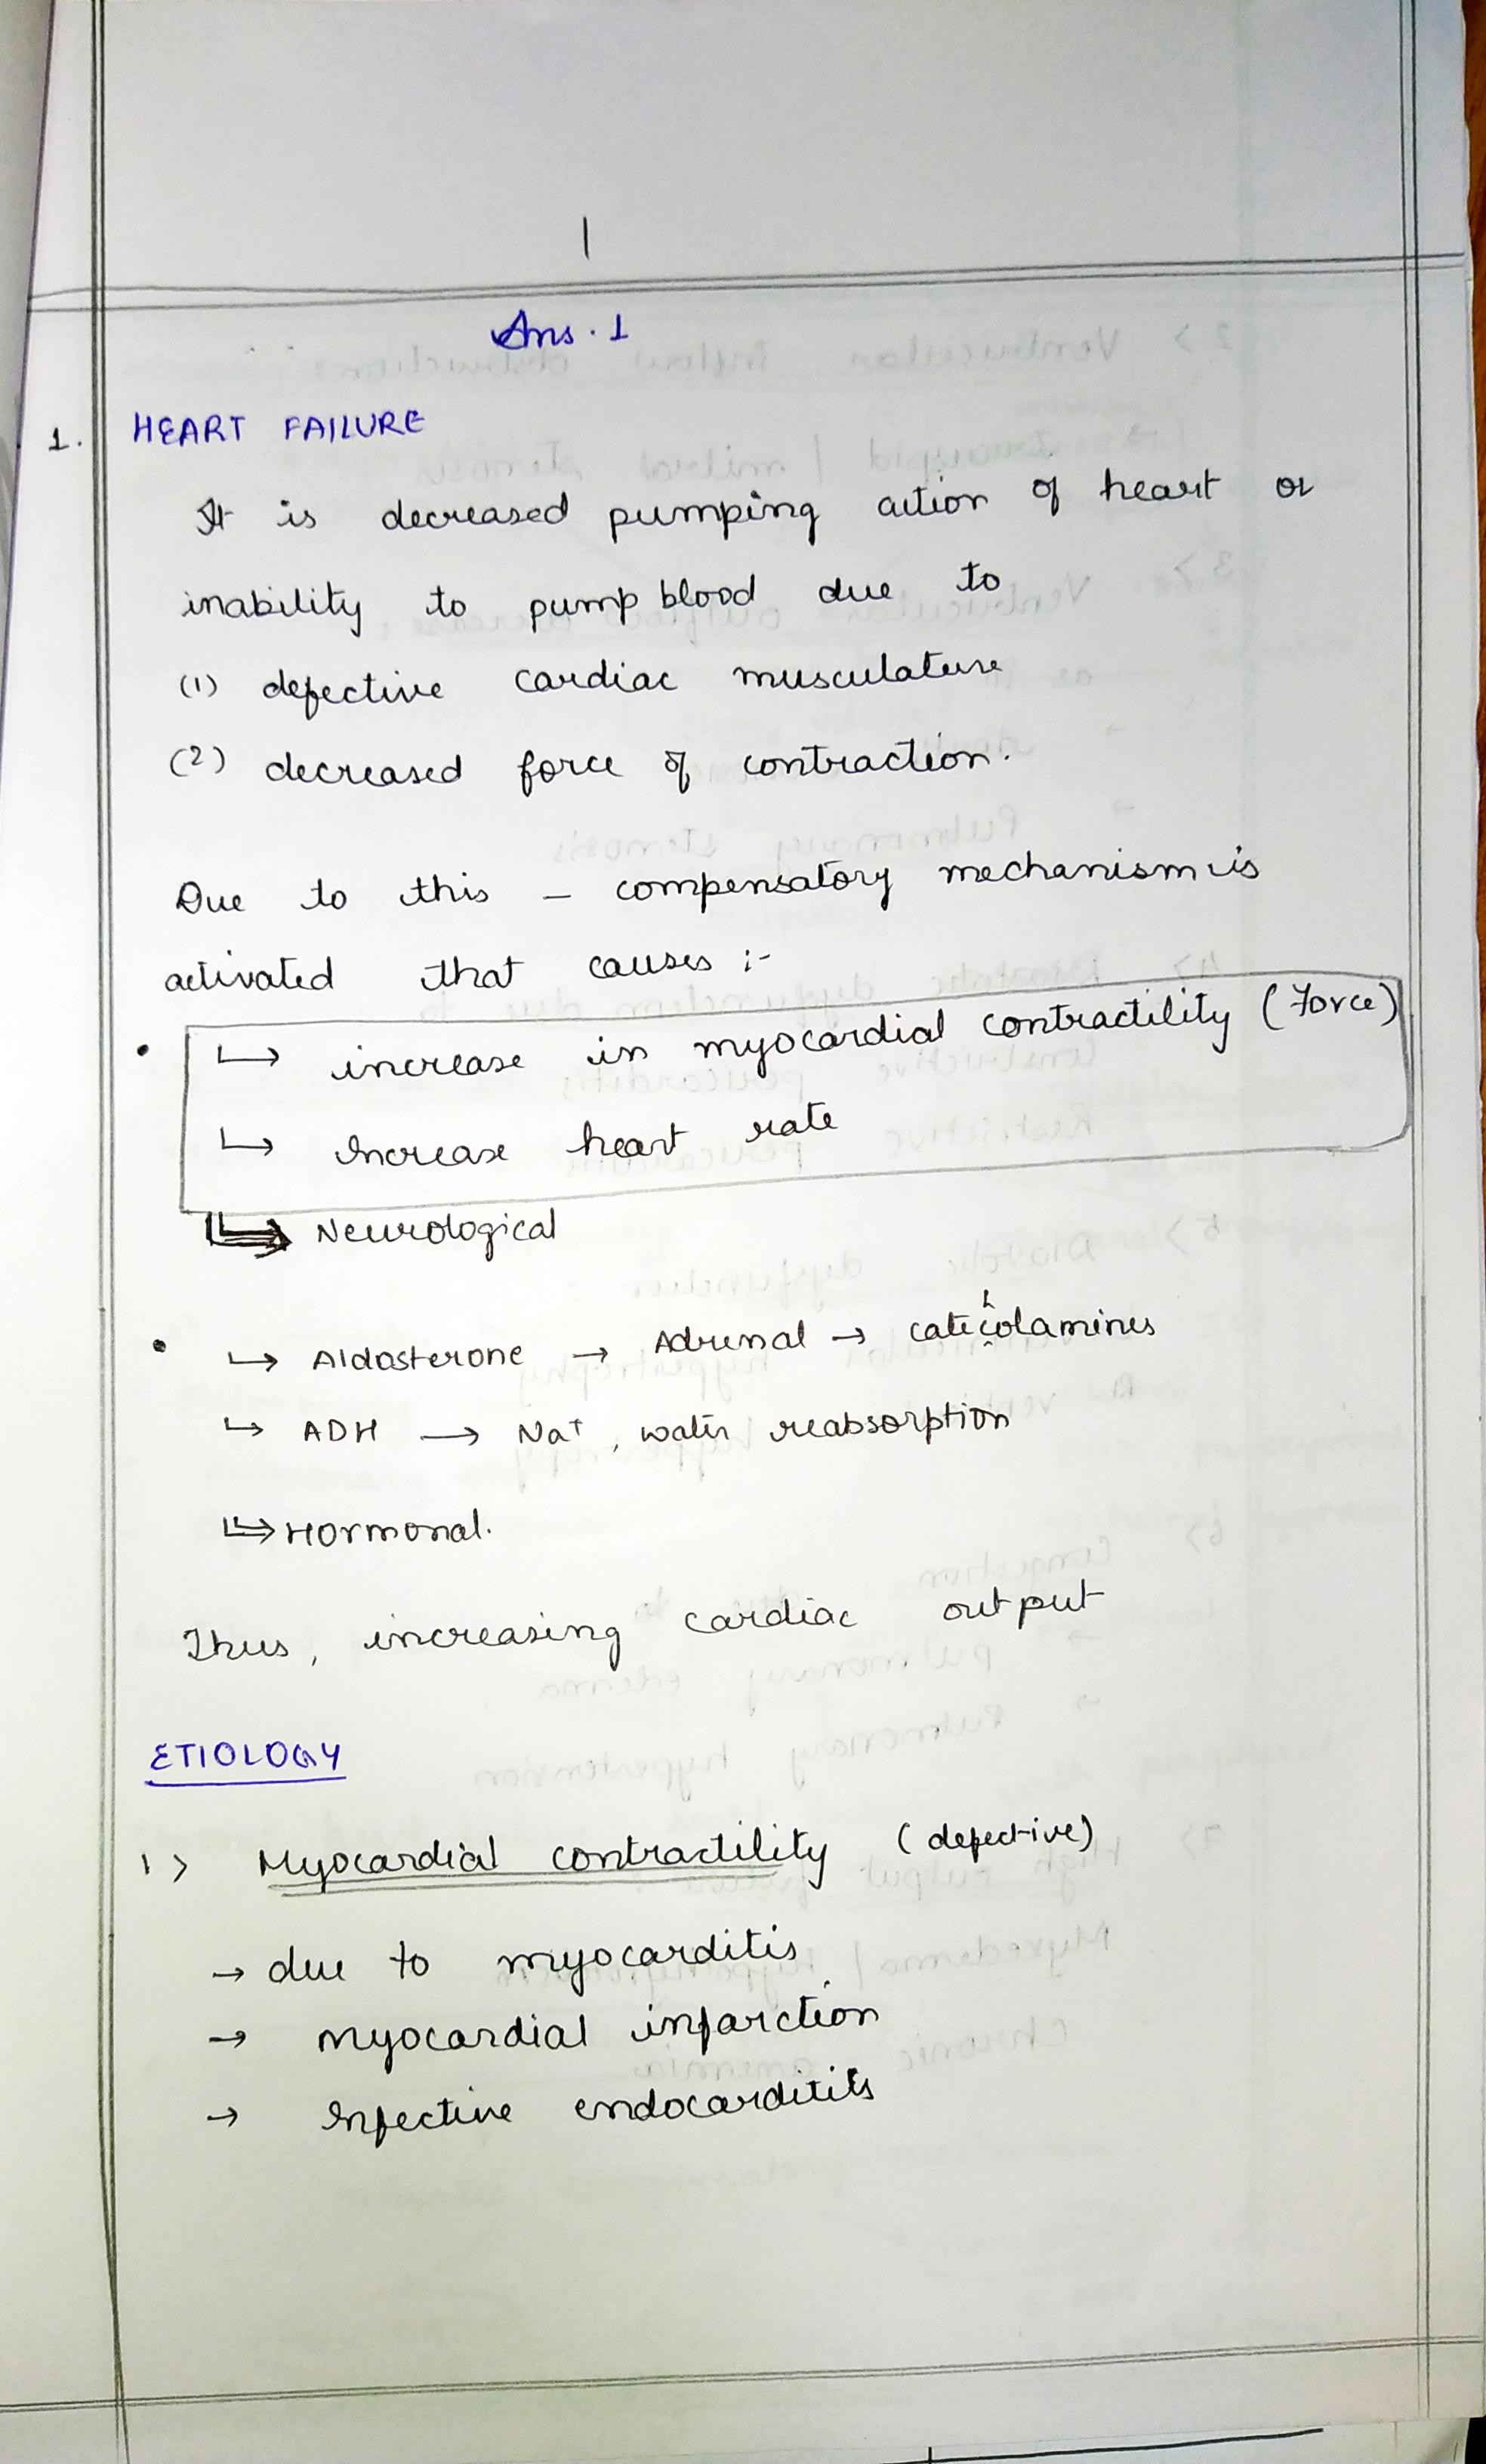 1
Ans. 1
1. HEART FAILURE
It is decreased pumping action of heart or
inability to pump blood due to
(1) defective cardiac musculature
(2) decreased force of contraction.
Due to this - compensatory mechanism is
activated that causes :-
• ↳ increase in myocardial contractility (Force)
↳ Increase heart rate
↳ Neurological
• ↳ Aldosterone → Adrenal → catecholamines
↳ ADH → Na+, water reabsorption
↳ Hormonal.
Thus, increasing cardiac output
ETIOLOGY
1> Myocardial contractility (defective)
→ due to myocarditis
→ Myocardial infarction
→ Infective endocarditis